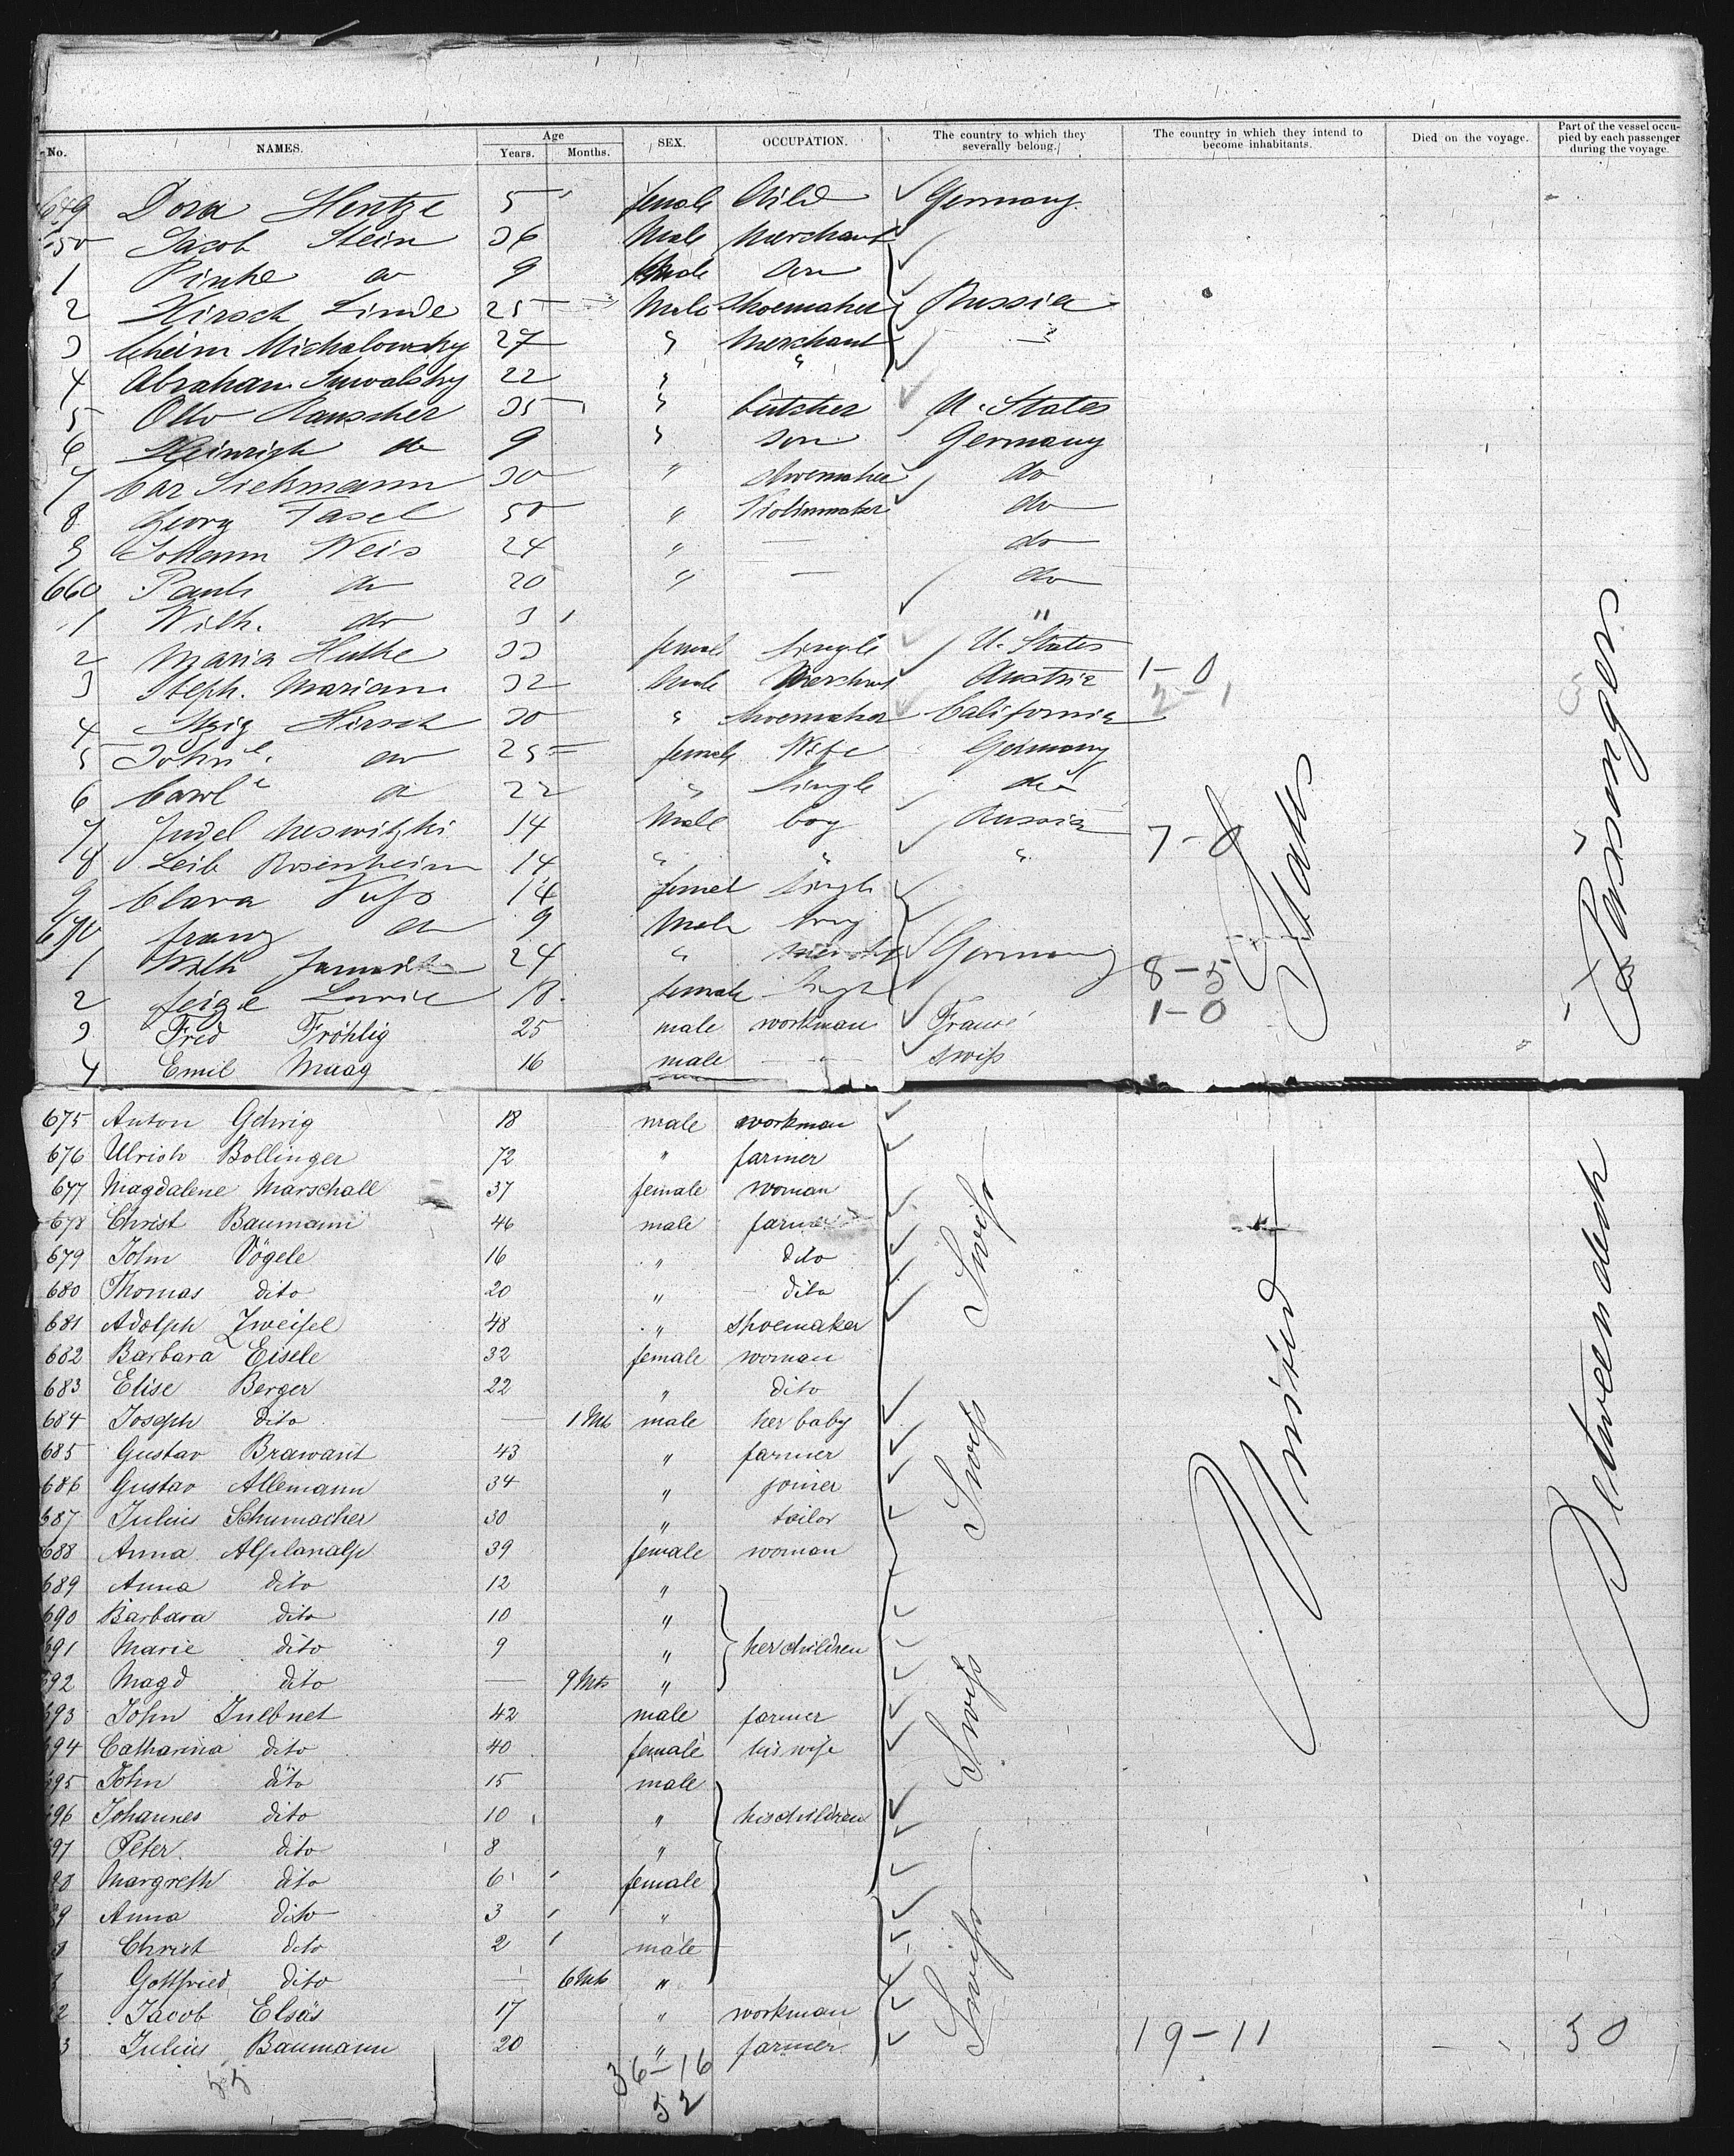 No. NAMES. Age Years. Months. SEX. OCCUPATION. The country to which they severally belong. The country in which they intend to become inhabitants. Died on the voyage. Part of the vessel occupied by each passenger during the voyage.
649 Dora Hentze 5 female Child Germany
650 Jacob Stein 36 Male Merchant
1 Pinke do 9 Male Son
2 Hirsch Linde 25 Male Shoemaker Russia
3 Cheim Michalowsky 27 " Merchant
4 Abraham Suwalsky 22 " "
5 Otto Rauscher 35 " butcher U. States
6 Heinrich do 9 " son Germany
7 Car Siekmann 30 " Shoemaker do
8 Georg Fasel 50 " Violinmaker do
9 Johann Weis 24 " — do
660 Paul do 20 " — do
1 Wilh. do 3 "
2 Maria Huthe 33 female Single U. States
3 Steph. Mariam 32 Male Merchant Austria 1-0
4 Itzig Hirsch 30 " Shoemaker California 2-1
5 John e. do 25 female Wife Germany
6 Carl e do 22 " Single do
7 Judel Meswitzki 14 Male boy Russia 7-0
8 Leib Rosenheim 14 " " "
9 Clara 14 female Single
670 franz do 9 Male boy
1 Wilh 24 " Germany 8-5
2 feige Lurie 18 female Single 1-0
3 Fred Fröhlig 25 male workman France
4 Emil Maag 16 male — " — swiss
675 Anton Gehrig 18 male workman
676 Ulrich Bollinger 72 " farmer
677 Magdalene Marschall 37 female woman
678 Christ Baumann 46 male farmer
679 John Vögele 16 " dito
680 Thomas dito 20 " dito
681 Adolph Zweifel 48 " shoemaker
682 Barbara Eisele 32 female woman
683 Elise Berger 22 " dito
684 Joseph dito — 1 Mts male her baby
685 Gustav Brawant 43 " farmer
686 Gustav Allemann 34 " joiner
687 Julius Schumacher 30 " tailor
688 Anna Alplanalp 39 female woman
689 Anna dito 12 "
690 Barbara dito 10 "
691 Marie dito 9 " her children
692 Magd dito — 9 Mts "
693 John Zulbnet 42 male farmer
694 Catharina dito 40 female his wife
695 John dito 15 male
696 Johannes dito 10 " his children
97 Peter dito 8 "
98 Margreth dito 6 female
99 Anna dito 3 "
Christ dito 2 male
Gottfried dito — 6 Mts "
2 Jacob Elsäs 17 " workman
3 Julius Baumann 20 " farmer 19-11 50
55 36-16
52
Swiss
Swiss
Swiss
Swiss
United States
Betweendeck Passengers